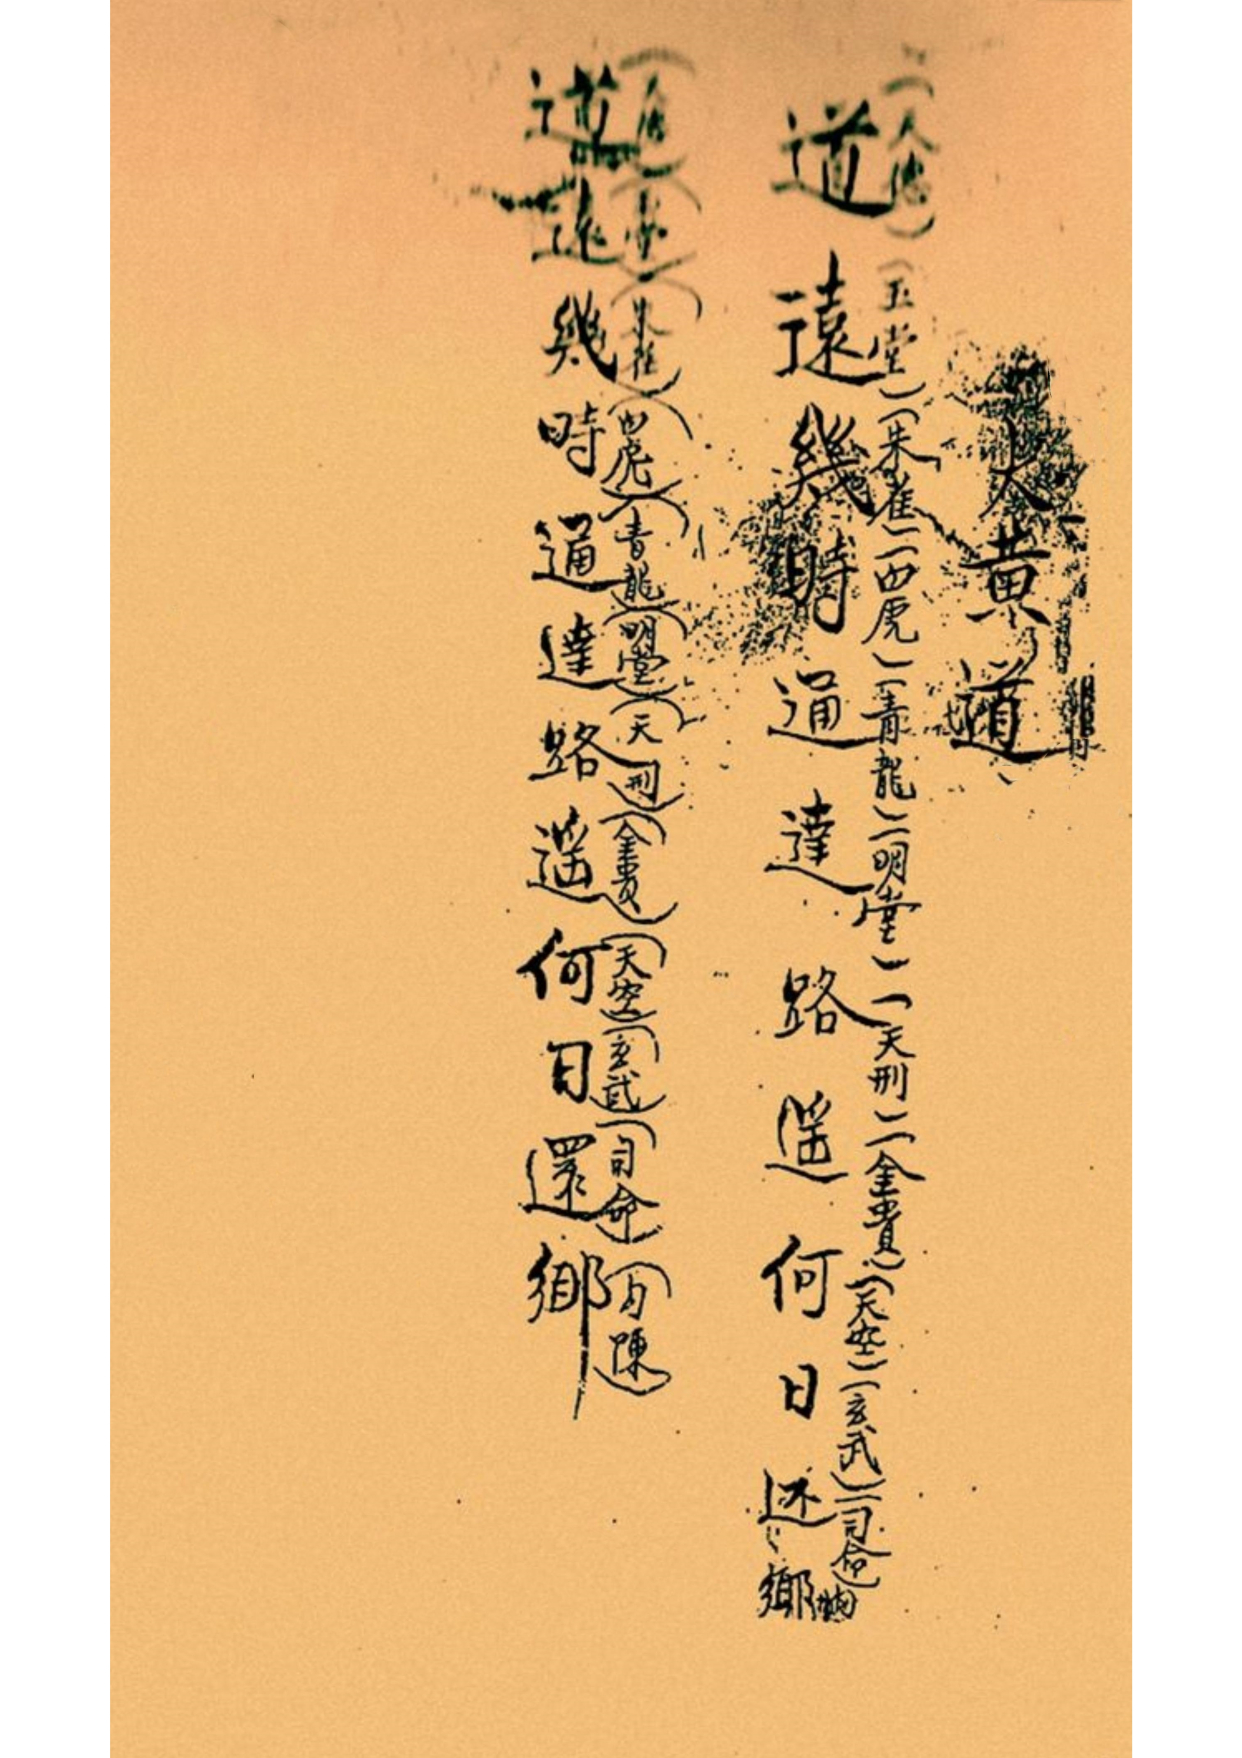 大黄道
(天德)(玉堂)(朱雀)(白虎)(青龍)(明堂)(天刑)(金貴)(天空)(玄武)(司命)
道遠幾時通達路遥何日还鄉
(朱雀)(白虎)(青龍)(明堂)(天刑)(金貴)(天空)(玄武)(司命)(勾陳)
道遠幾時通達路遥何日還鄉